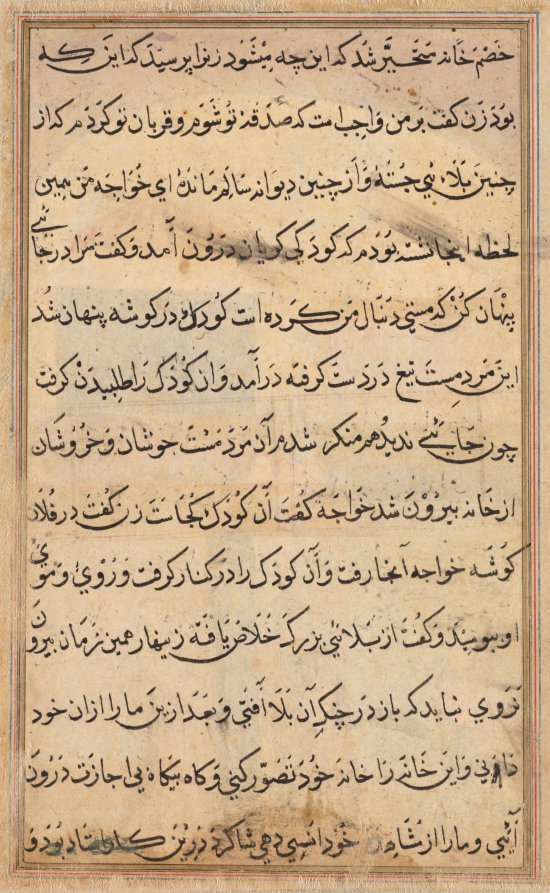 خصم خانه متحیر شد که این چه میشود زنرا پرسید که این که
بود زن گفت بر من واجب است که صدقهٔ تو شوم و قربان تو گردم که از
چنین بلائی جسته و از چنین دیوانه سالم ماندهٔ ای خواجه من همین
لحظه اینجا نشسته بودم که کودکی گریان درون آمد و گفت مرا در جائی
پنهان کن که مستی دنبال من کرده است کودک در گوشه پنهان شد
این مرد مست تیغ در دست گرفته درآمد و آن کودک را طلبیدن گرفت
چون جائی ندید هم منکر شدم آن مرد مست جوشان و خروشان
از خانه بیرون شد خواجه گفت آن کودک کجاست زن گفت در فلان
گوشه خواجه آنجا رفت و آن کودک را در کنار گرفت و روی و موی
او بوسید و گفت از بلائی بزرگ خلاص یافتهٔ زینهار همین زمان بیرون
نروی نباید که باز در چنگ آن بلا افتی و بعد ازین ما را ازان خود
دانی و این خانه را خانهٔ خود تصور کنی و گاه بیگاه بی اجازت درون
آئی و ما را از خود انسی دهی شاگرد درین کار استاد بود و